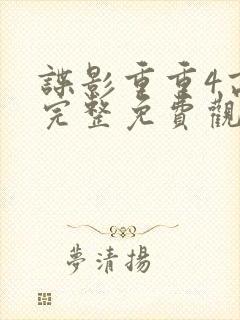 諜影重重4
完整免費觀
夢清揚